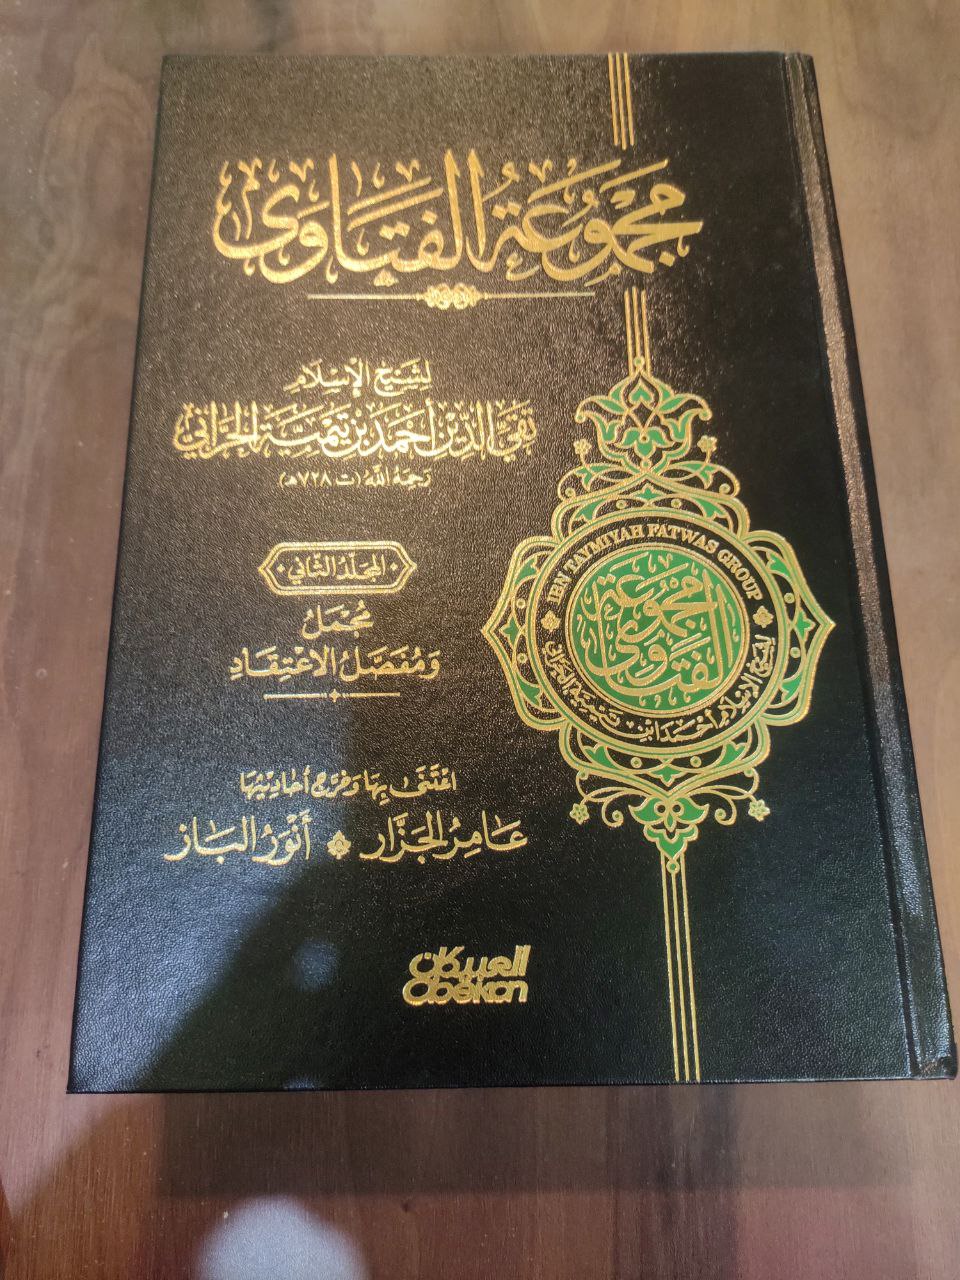 مجموعة الفتاوى
لشيخ الإسلام
تقي الدين أحمد بن تيمية الحراني
رحمه الله (ت ٧٢٨هـ)
المجلد الثاني
مجمل
ومفصل الاعتقاد
اعتنى بها وخرج أحاديثها
عامر الجزار أنور الباز
العبيكان
Obēkan
IBN TAYMIYAH FATWAS GROUP
مجموعة
الفتاوى
لشيخ الإسلام أحمد ابن تيمية الحراني